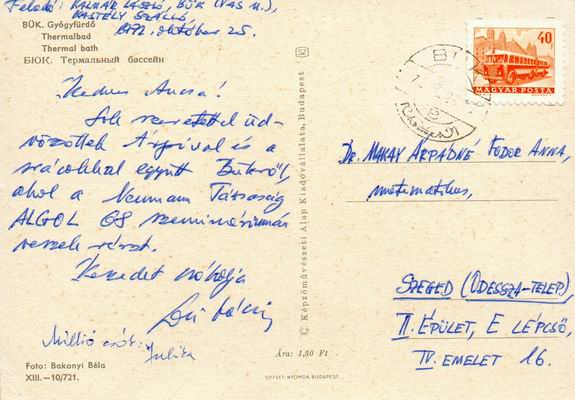 Feladó: KALMÁR LÁSZLÓ, BÜK (VAS M.),
KASTÉLY SZÁLLÓ,
1972. október 25.
BÜK. Gyógyfürdő
Thermalbad
Thermal bath
БЮК. Термальный бассейн
Kedves Ancsa!
Sok szeretettel üd-
vözöllek Árpival és a
srácokkal együtt Bükről,
ahol a Neumann Társaság
ALGOL 68 szemináriumán
veszek részt.
Kezedet csókolja
Laci bácsi
Millió csók: Julika
Foto: Bakonyi Béla
XIII.—10/721.
© Képzőművészeti Alap Kiadóvállalata, Budapest
Ára: 1,50 Ft
OFFSET-NYOMDA, BUDAPEST
40 f
MAGYAR POSTA
BÜK
Dr. MAKAY ÁRPÁDNÉ FODOR ANNA,
matematikus,
SZEGED (ODESSZA-TELEP),
II. ÉPÜLET, E LÉPCSŐ,
IV. EMELET 16.